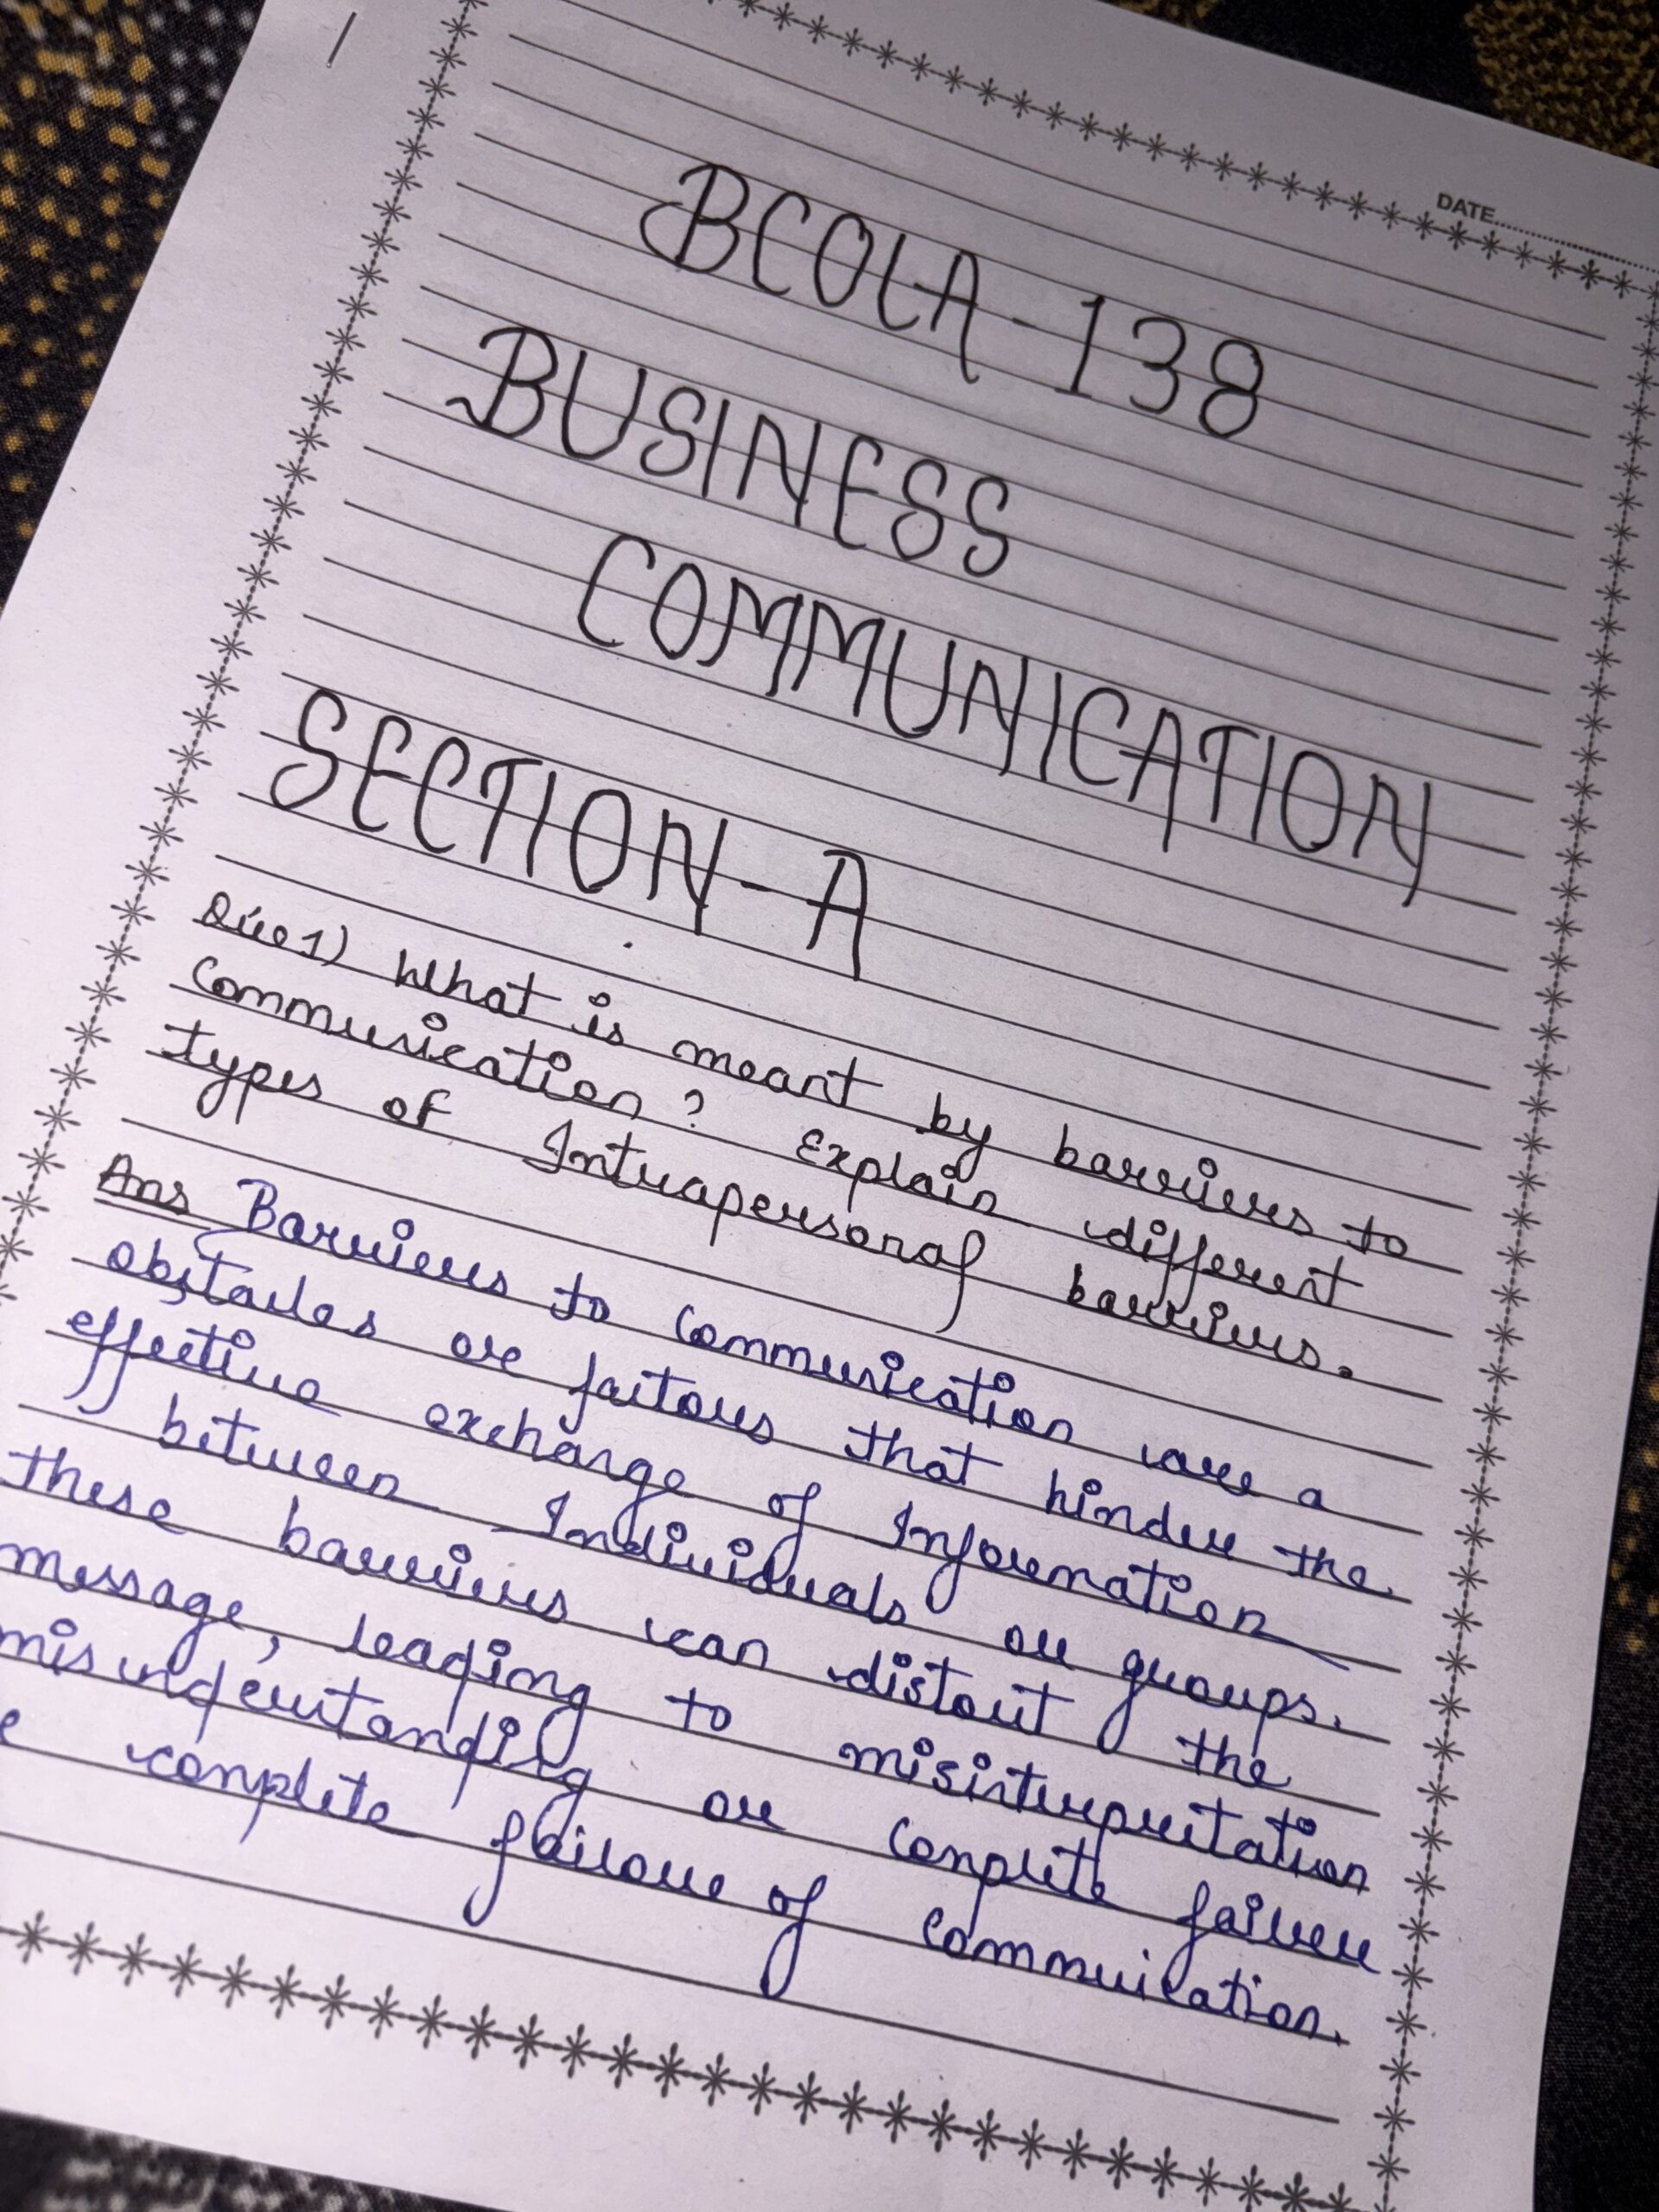 DATE
BCOLA-138
BUSINESS
COMMUNICATION
SECTION-A
Que1) What is meant by barriers to
Communication? Explain different
types of Intrapersonal barriers.
Ans Barriers to Communication are a
obstacles or factors that hinder the
effective exchange of Information
between Individuals or groups.
these barriers can distort the
message, leading to misinterpretation
misunderstanding or complete failure
complete failure of communication.